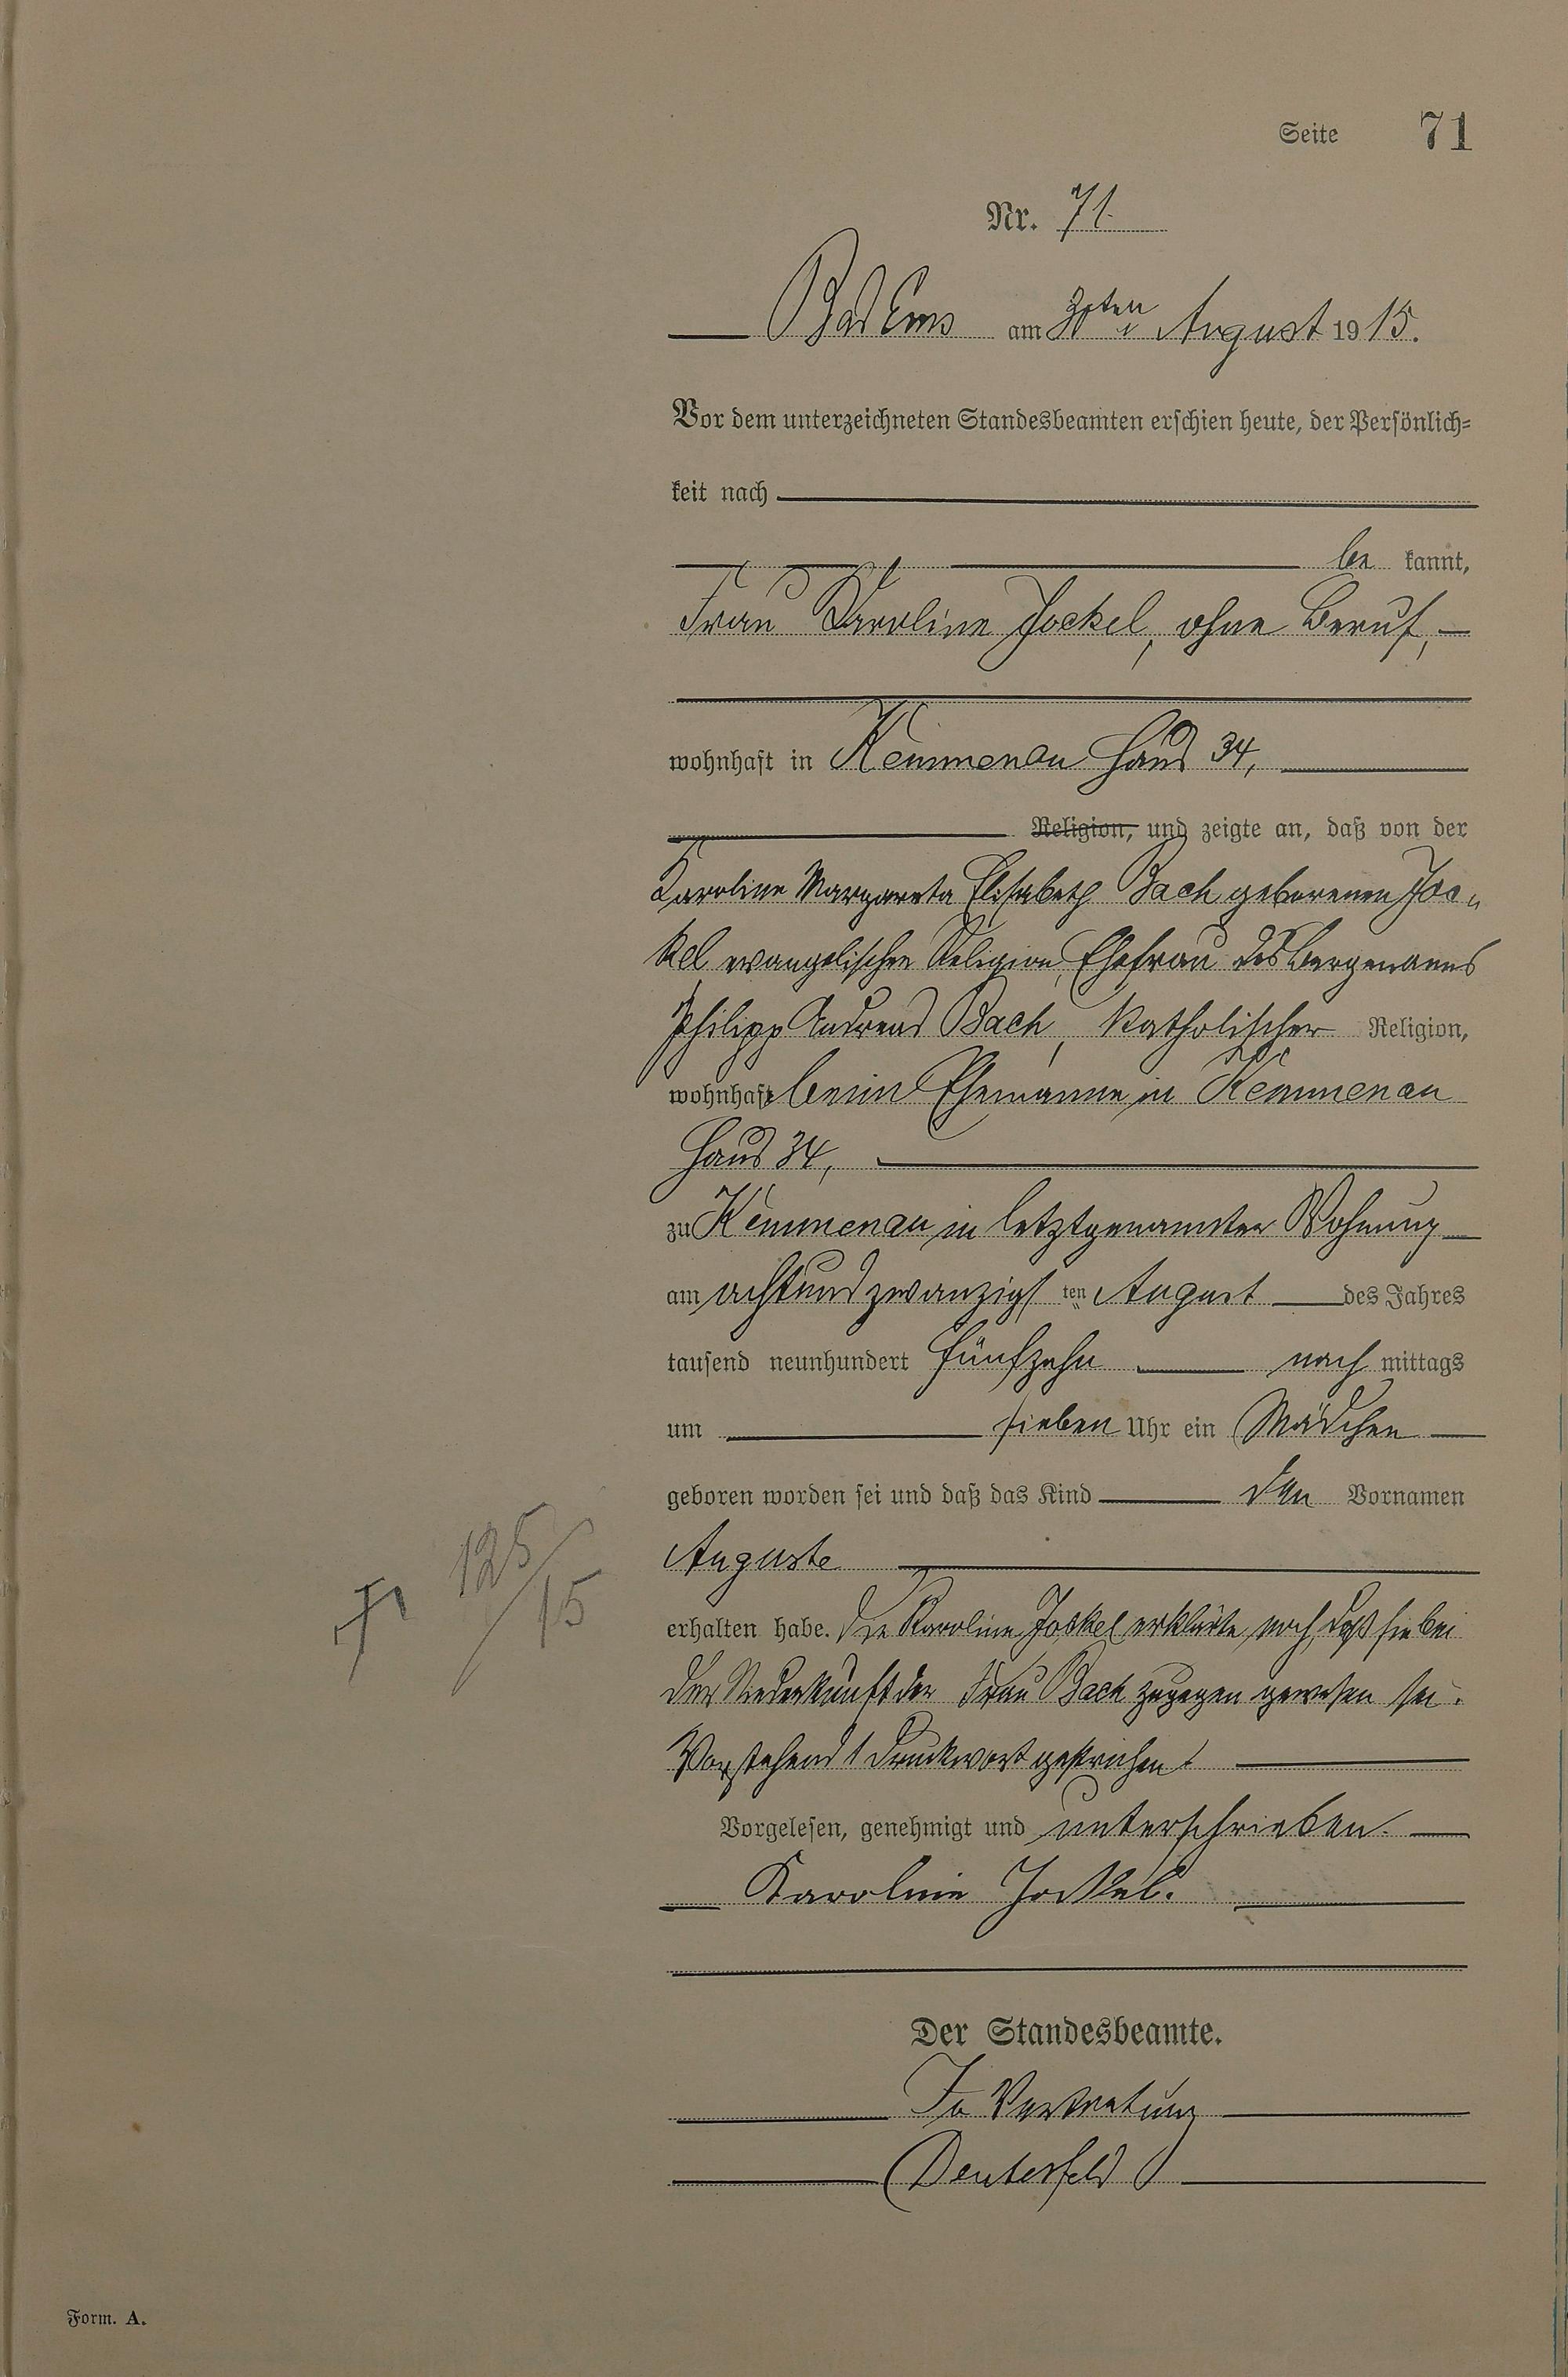 Seite 71
Nr. 71.
Bad Ems am 30ten August 1915.
Vor dem unterzeichneten Standesbeamten erschien heute, der Persönlich-
keit nach
be kannt,
Frau Karoline Jockel, ohne Beruf,
wohnhaft in Kemmenau Haus 34,
Religion, und zeigte an, daß von der
Karoline Margareta Elisabeth Bach geborenen Joc-
kel evangelischer Religion, Ehefrau des Bergmanns
Philipp Andreas Bach, katholischer Religion,
wohnhaft beim Ehemanne in Kemmenau
Haus 34,
zu Kemmenau in letztgenannter Wohnung
am achtundzwanzigsten August des Jahres
tausend neunhundert fünfzehn nach mittags
um sieben Uhr ein Mädchen
geboren worden sei und daß das Kind den Vornamen
Auguste
erhalten habe. Die Karoline Jockel erklärte noch, daß sie bei
der Niederkunft der Frau Bach zugegen gewesen sei.
Vorstehend 1 Druckwort gestrichen
Vorgelesen, genehmigt und unterschrieben.
Karoline Jockel.
Der Standesbeamte.
In Vertretung
Deutesfeld
† 125/15
Form. A.